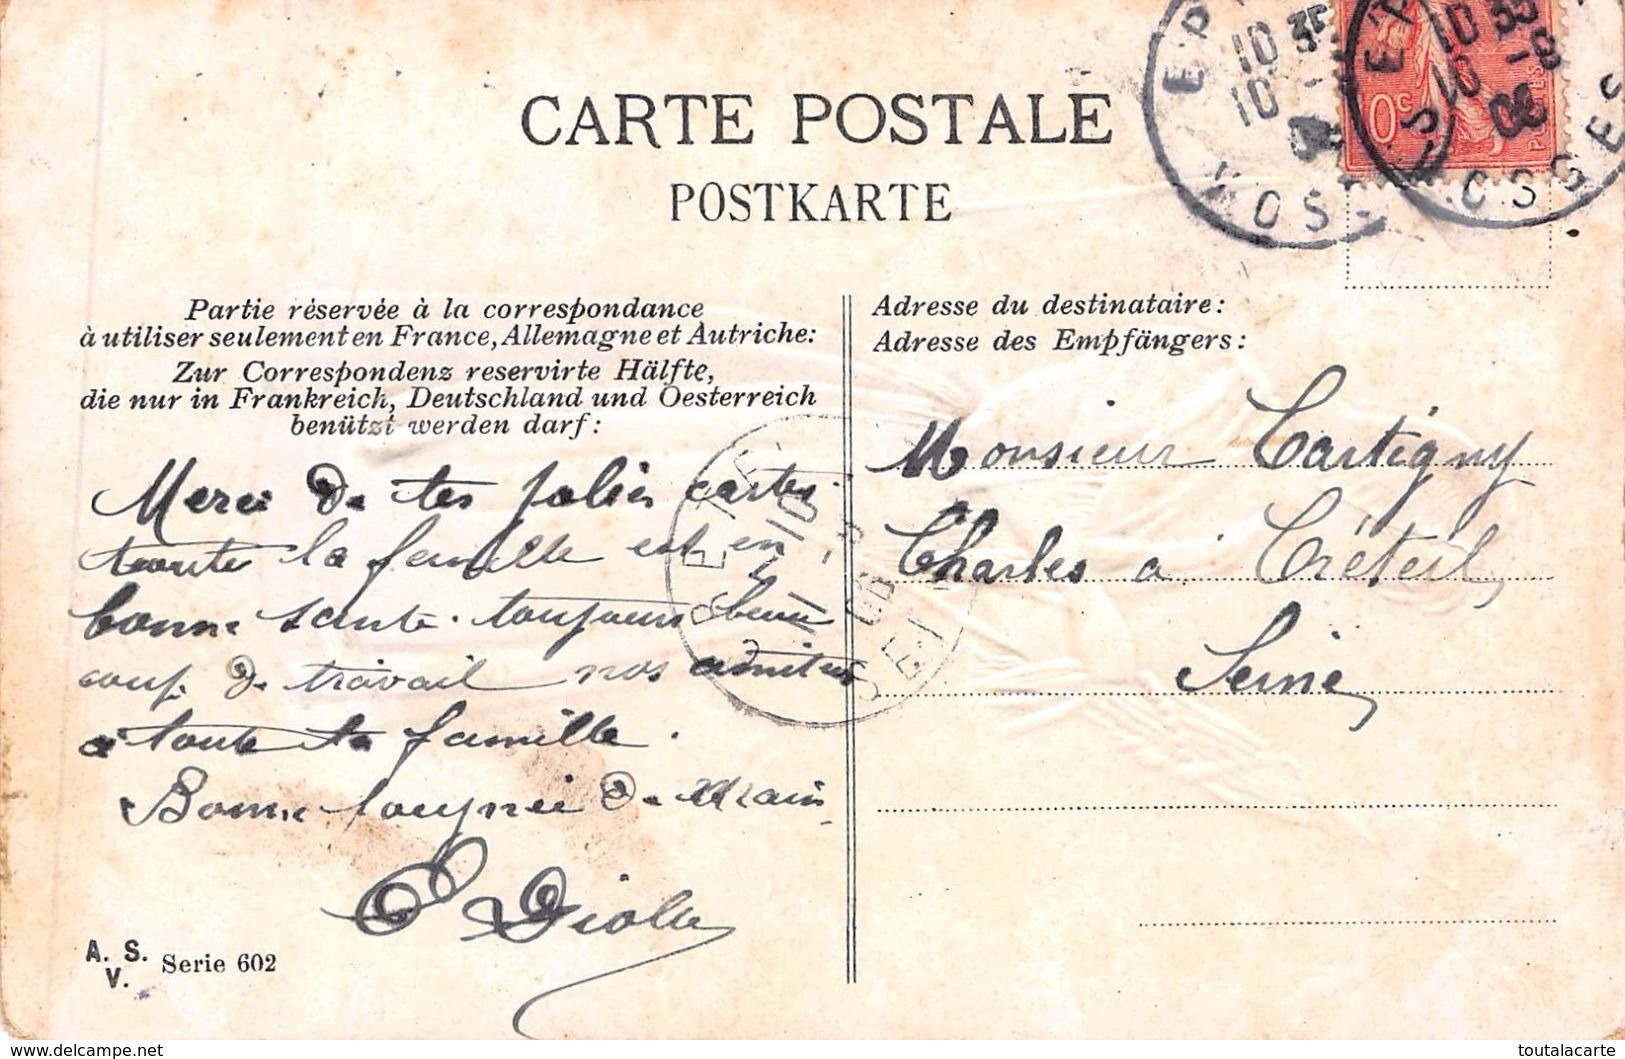 CARTE POSTALE
POSTKARTE
10c
VOSGES
Partie réservée à la correspondance
à utiliser seulement en France, Allemagne et Autriche:
Zur Correspondenz reservirte Hälfte,
die nur in Frankreich, Deutschland und Oesterreich
benützt werden darf:
Merci de tes jolies cartes.
toute la famille est en
bonne santé. toujours beau
coup de travail nos amitiés
à toute la famille.
Bonne de main
Diolle
A. S.
V. Serie 602
Adresse du destinataire:
Adresse des Empfängers:
Monsieur Cartigny
Charles a Créteil
Seine
delcampe.net
toutalacarte